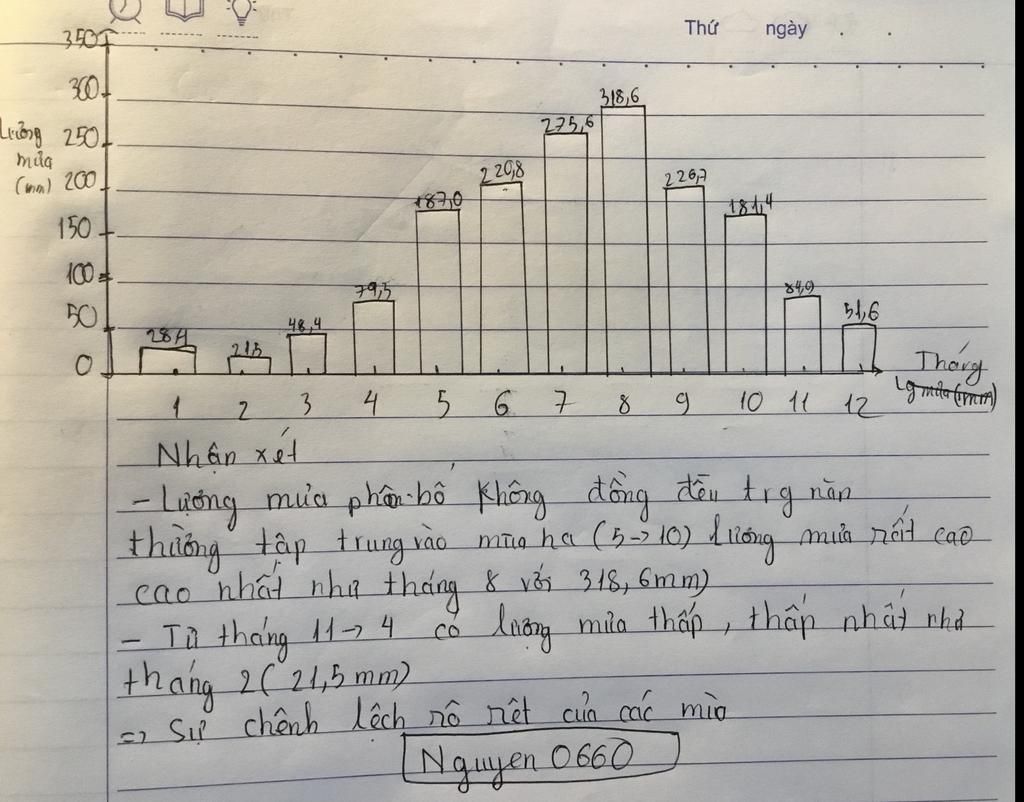 Thứ ngày . .
350
300
250
200
150
100
50
0
Lượng
mưa
(mm)
28,4
21,5
48,4
79,5
187,0
220,8
275,6
318,6
226,7
181,4
84,9
51,6
1 2 3 4 5 6 7 8 9 10 11 12
Tháng
Nhận xét
- Lượng mưa phân bố không đồng đều trg năn
thường tập trung vào mùa hạ (5->10) lượng mưa rất cao
cao nhất như tháng 8 với 318,6mm)
- Từ tháng 11->4 có lượng mưa thấp, thấp nhất như
tháng 2 (21,5mm)
=> Sự chênh lệch rõ rệt của các mùa
Nguyen 0660